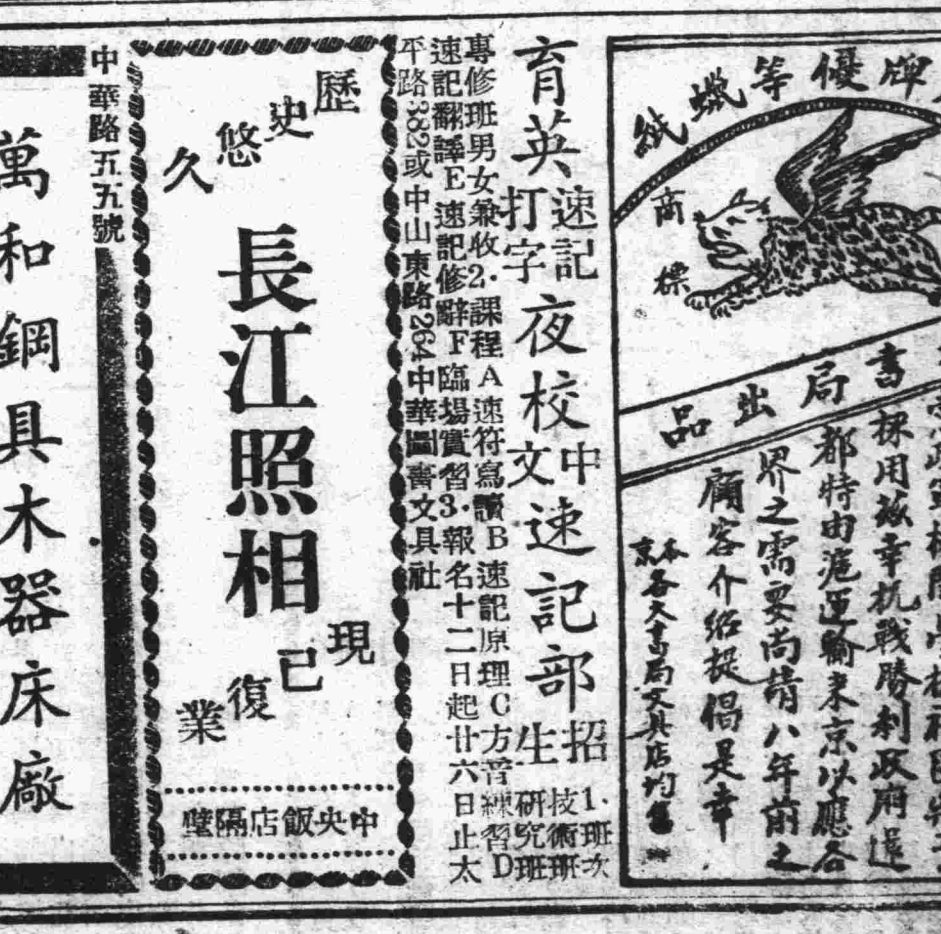 牌優等蠟紙
商標
書局出品
採用茲幸抗戰勝利政府還
都特由滬運輸來京以應各
界之需要尚請八年前之
顧客介紹提倡是幸
本京各大書局文具店均售
育英速記打字夜校中文速記部招生
1.班次技術班研究班
專修班男女兼收2.課程A速符寫讀B速記原理C方音練習D
速記翻譯E速記修辭F臨場實習3.報名十二日起廿六日止太
平路382或中山東路264中華圖書文具社
歷史悠久
長江照相
現已復業
中央飯店隔壁
中華路五五號
萬和鋼具木器床廠